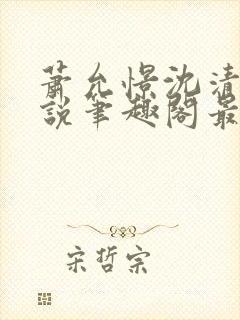 萧允憬沈清
说笔趣阁最
宋哲宗